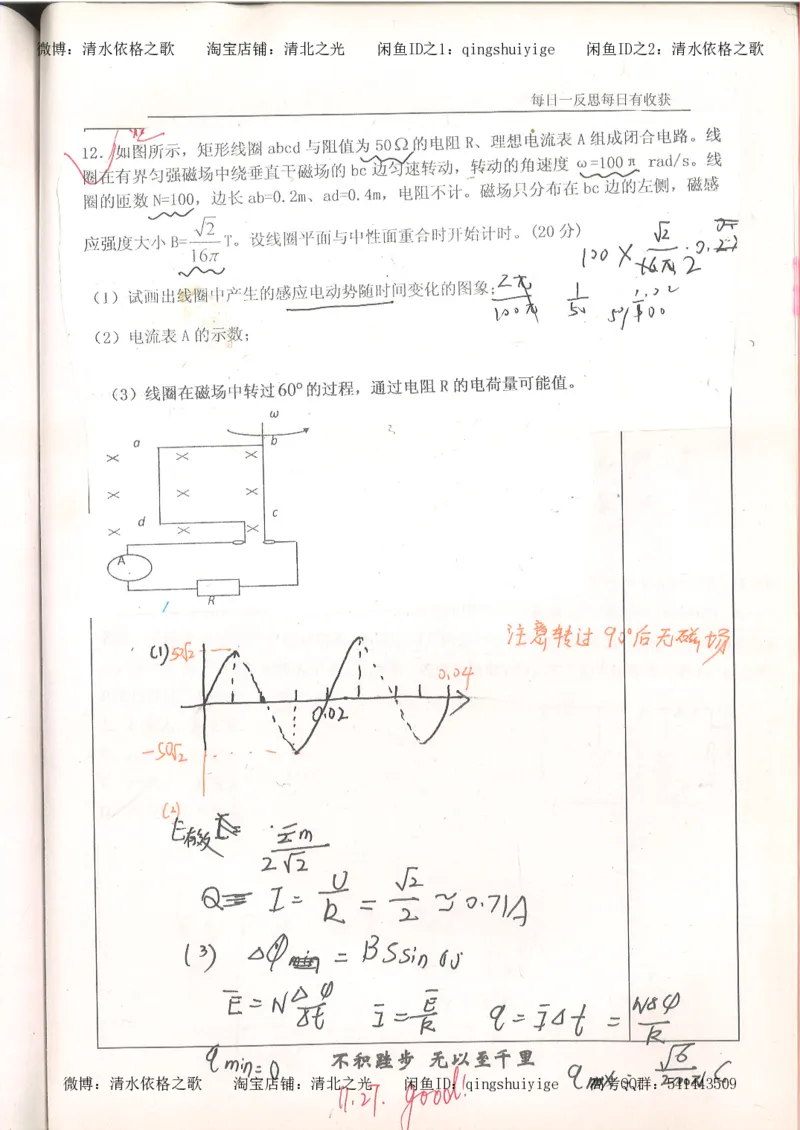 微博：清水依格之歌 淘宝店铺：清北之光 闲鱼ID之1：qingshuiyige 闲鱼ID之2：清水依格之歌
每日一反思每日有收获
12. 如图所示，矩形线圈 abcd 与阻值为 50Ω的电阻 R、理想电流表 A 组成闭合电路。线
圈在有界匀强磁场中绕垂直于磁场的 bc 边匀速转动，转动的角速度 ω=100π rad/s。线
圈的匝数 N=100，边长 ab=0.2m、ad=0.4m，电阻不计。磁场只分布在 bc 边的左侧，磁感
应强度大小 B=√2/16π T。设线圈平面与中性面重合时开始计时。(20 分)
100 × √2/16π · 0.2
（1）试画出线圈中产生的感应电动势随时间变化的图象；
2π/100π 1/50
（2）电流表 A 的示数；
（3）线圈在磁场中转过60°的过程，通过电阻 R 的电荷量可能值。
ω
a b
d c
A
R
注意转过 90°后无磁场
(1) 50√2
0.04
0.02
-50√2
(2)
E有效 = Em/2√2
I = U/R = √2/2 ≈ 0.71A
(3) ΔΦ = BSsin ω
Ē = N Δφ/Δt Ī = Ē/R q = ĪΔt = NΔφ/R
qmin = 0
不积跬步 无以至千里
微博：清水依格之歌 淘宝店铺：清北之光 闲鱼ID：qingshuiyige 高考QQ群：541443509
11.27. good!